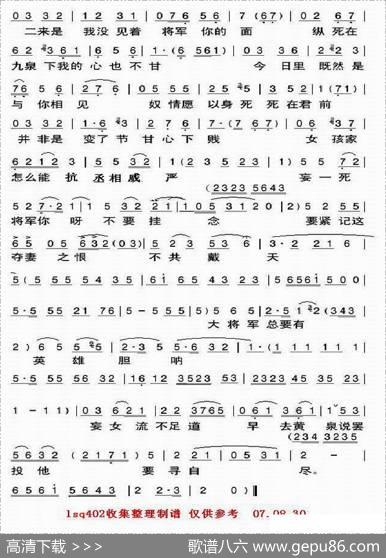 03 32 | 12 03 | 076 56 | 7 (67) | 02 67 |
二来是 我没见着 将军 你的 面 纵死在
62 361 | 65 6 | 5·672 | 6·(6 561) | 03 36 | 2 23 |
九泉 下我的 心 也 不 甘 今 日里 既然是
76 56 | 7 67 | 2·7 | 6 1 02 | 3 23 5 | 352 1 | (71) |
与 你相 见 奴 情愿 以身 死 死 在 君 前
03 32 | 1·6 3 | 2·3 27 | 6·7 | 7·(7 67) | 0·6 3 |
并非是 变了 节 甘 心 下 贱 女 孩家
6212 3 | 5 5 32 | 1 (23 | 5 23 | 1) 5 | 55 72 |
怎么能 抗 丞相 威 严 妾 一死
(2323 5643)
52 7·21 | 1 5 32 | 2 1 | 01 05 | 31 20 | 2) 5 2 55 |
将军你 呀 不要 挂 念 要 紧记 这
6 5 05 | 632 (03) | 5 23 | 53 6 | 3·2 21 6 |
夺妻 之 恨 不 共 戴 天
5 (5 | 55 54 35 | 61 65 43 23 | 5·5 51 | 56561 500 |
5·5 55 21 76 | 5 - 55 5 | 5) 5 65 | 2·5 1 2 (343 |
大 将军 总要 有
2) 6 5 | 5 5 | 2·3 5 | 5·6 32 | 1·(1 | 11 11) |
英 雄 胆 呐
5·5 55 56 32 | 16 12 3523 | 2323 45 35 23 |
1 - 11) | 03 621 | 22 3765 | 061 361 | 1 5 35 |
妾 女流 不足道 早 去黄 泉说罢
(234 3235)
5632 | (2171 | 5 1 | 5 7 2 1 | 051 0 31 | 2 (5 |
投他 要 寻自 尽。
6561 5643 | 2 52 | 2 2 | 2 0)‖
lsq402收集整理制谱 仅供参考 07.08.30
高清下载 >>> 歌谱八六 www.gepu86.com